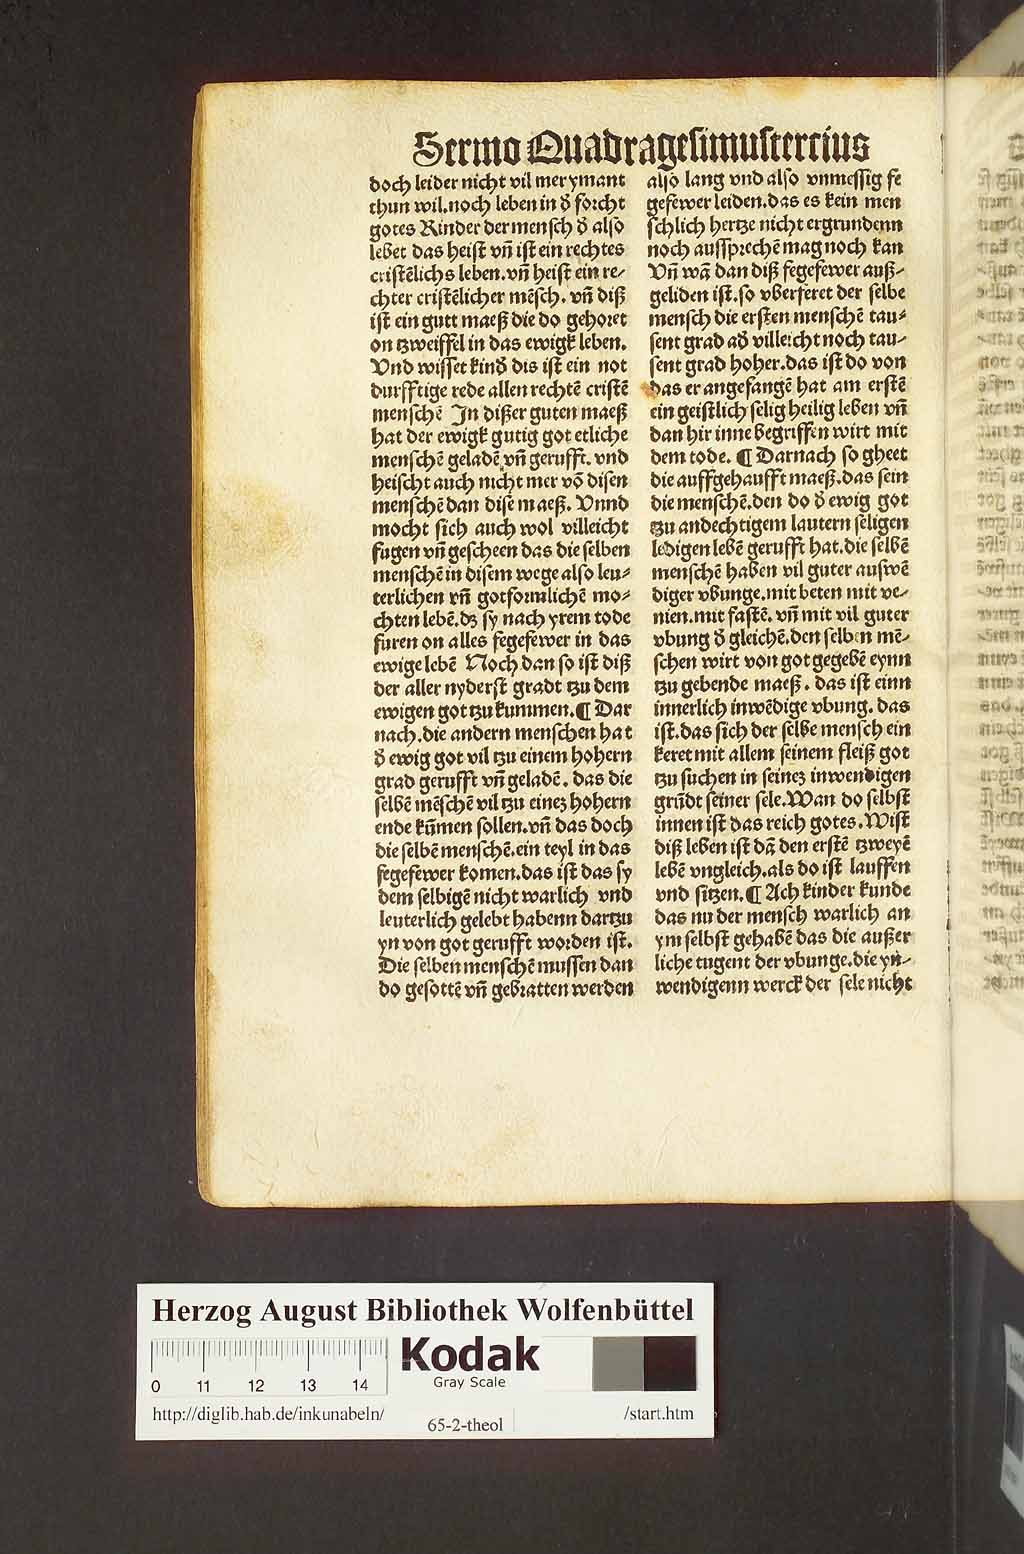 Sermo Quadragesimustertius
doch leider nicht vil mer ymant
thun wil. noch leben in d̛ forcht
gotes Kinder der mensch d̛ also
lebet das heist vn̄ ist ein rechtes
cristēlichs leben. vn̄ heist ein re-
chter cristēlicher mēsch. vn̄ diß
ist ein gutt maeß die do gehoret
on tzweiffel in das ewigk leben.
Vnd wisset kind̛ dis ist ein not
durfftige rede allen rechtē cristē
menschē Jn dißer guten maeß
hat der ewigk gutig got etliche
menschē geladē vn̄ gerufft. vnd
heischt auch nicht mer vō disen
menschē dan dise maeß. Vnnd
mocht sich auch wol villeicht
fugen vn̄ gescheen das die selben
menschē in disem wege also leu-
terlichen vn̄ gotformlichē mo-
chten lebē. dz sy nach yrem tode
furen on alles fegefewer in das
ewige lebē Noch dan so ist diß
der aller nyderst gradt tzu dem
ewigen got tzu kummen. ¶ Dar
nach. die andern menschen hat
d̛ ewig got vil tzu einem hohern
grad gerufft vn̄ geladē. das die
selbē mēschē vil tzu einez hohern
ende kūmen sollen. vn̄ das doch
die selbē menschē. ein teyl in das
fegefewer komen. das ist das sy
dem selbigē nicht warlich vnd
leuterlich gelebt habenn dartzu
yn von got gerufft worden ist.
Die selben menschē mussen dan
do gesottē vn̄ gebratten werden
also lang vnd also vnmessig fe
gefewer leiden. das es kein men
schlich hertze nicht ergrundenn
noch aussprechē mag noch kan
Vn̄ wā dan diß fegefewer auß-
geliden ist. so vberferet der selbe
mensch die ersten menschē tau-
sent grad ad̛ villeicht noch tau-
sent grad hoher. das ist do von
das er angefangē hat am erstē
ein geistlich selig heilig leben vn̄
dan hir inne begriffen wirt mit
dem tode. ¶ Darnach so gheet
die auffgehaufft maeß. das sein
die menschē. den do d̛ ewig got
tzu andechtigem lautern seligen
ledigen lebē gerufft hat. die selbē
menschē haben vil guter auswē
diger vbunge. mit beten mit ve-
nien. mit fastē. vn̄ mit vil guter
vbung d̛ gleichē. den selben mē-
schen wirt von got gegebē eynn
tzu gebende maeß. das ist einn
innerlich inwēdige vbung. das
ist. das sich der selbe mensch ein
keret mit allem seinem fleiß got
tzu suchen in seinez inwendigen
grūdt seiner sele. Wan do selbst
innen ist das reich gotes. Wist
diß leben ist dā den erstē tzweyē
lebē vngleich. als do ist lauffen
vnd sitzen. ¶ Ach kinder kunde
das nu der mensch warlich an
ym selbst gehabē das die außer
liche tugent der vbunge. die yn-
wendigenn werck der sele nicht
Herzog August Bibliothek Wolfenbüttel
Kodak
Gray Scale
0 11 12 13 14
http://diglib.hab.de/inkunabeln/
65-2-theol
/start.htm